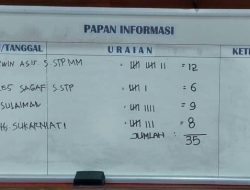 PAPAN INFORMASI
/TANGGAL URAIAN KET
WIN ASIF S STP.MM = 12
SAGAF S STP = 6
SULAIMAN = 9
SUKARNIATI = 8
JUMLAH: 35